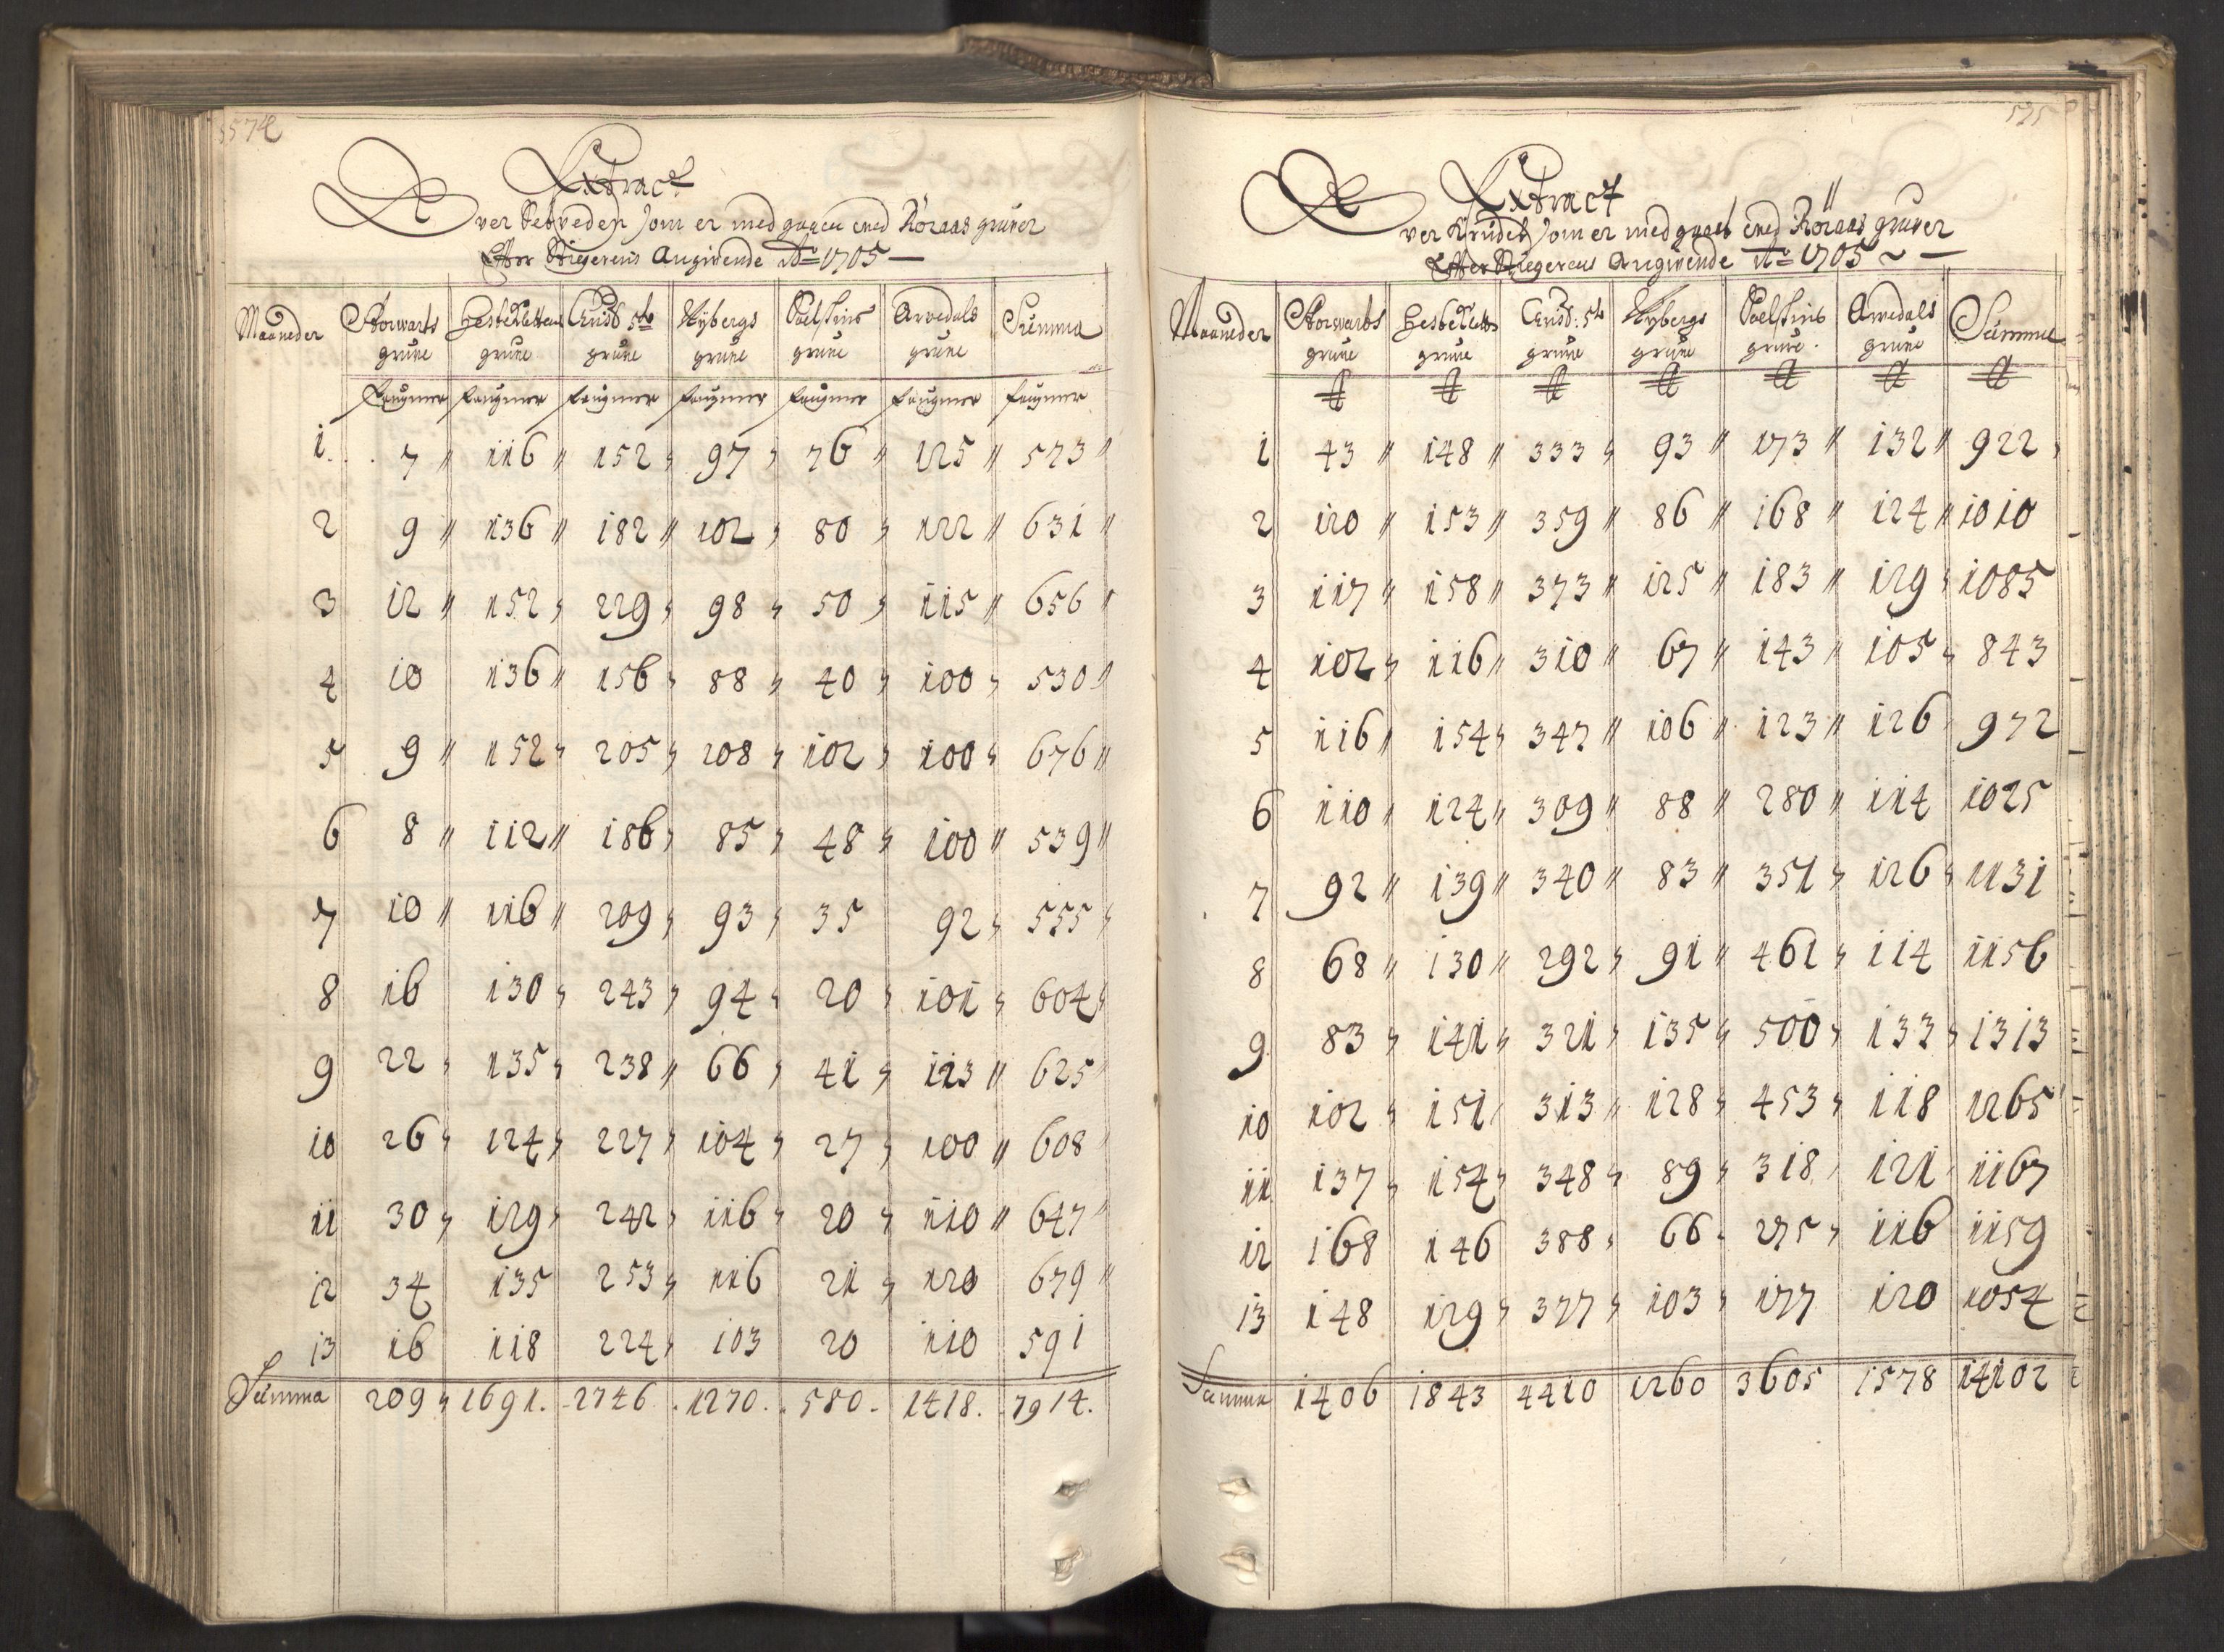 574
Extract
Over Setveden som er medgaaen ved Röraas gruver
Efter Stigerens Angivende Ao 1705
Maaneder Storwarts grune Hestekletten grune Christ: 5te grune Nÿbergs grune Soelskins grune Arvedals grune Summa
faugmer faugmer faugmer faugmer faugmer faugmer faugmer
1 7 " 116 " 152 " 97 " 76 " 125 " 573 "
2 9 " 136 " 182 " 102 " 80 " 122 " 631 "
3 12 " 152 " 229 " 98 " 50 " 115 " 656 "
4 10 136 " 156 " 88 " 40 " 100 " 530 "
5 9 " 152 " 205 " 108 " 102 " 100 " 676 "
6 8 " 112 " 186 " 85 " 48 " 100 " 539 "
7 10 " 116 " 209 " 93 " 35 92 " 555 "
8 16 130 " 243 " 94 " 20 " 101 " 604 "
9 22 " 135 " 238 " 66 " 41 " 123 " 625 "
10 26 " 124 " 227 " 104 " 27 " 100 " 608 "
11 30 " 129 " 242 " 116 " 20 " 110 " 647 "
12 34 135 253 " 116 21 " 120 679 "
13 16 118 224 " 103 20 110 591
Summa 209 " 1691. 2746. 1270. 580. 1418. 7914.
575
Extract
Over Krudet som er medgaaet ved Röraas gruver
Efter Stigerens Angivende Ao 1705
Maaneder Storwarts grune Hestekletten grune Christ: 5te grune Nÿbergs grune Soelskins grune Arvedals grune Summa
℔ ℔ ℔ ℔ ℔ ℔ ℔
1 43 " 148 " 333 " 93 " 173 " 132 " 922 "
2 120 " 153 " 359 " 86 " 168 " 124 " 1010
3 117 " 158 " 373 " 125 " 183 " 129 " 1085
4 102 " 116 " 310 " 67 " 143 " 105 " 843
5 116 " 154 " 347 " 106 " 123 " 126 972
6 110 " 124 " 309 " 88 " 280 " 114 1025
7 92 " 139 " 340 " 83 " 351 " 126 " 1131
8 68 " 130 " 292 " 91 " 461 " 114 1156
9 83 " 141 " 321 " 135 " 500 " 133 " 1313
10 102 " 151 313 " 128 " 453 " 118 1265
11 137 " 154 " 348 " 89 " 318 121 1167
12 168 146 388 " 66 275 " 116 1159
13 148 129 " 377 " 103 " 177 120 1054
Summa 1406 1843 4410 1260 3605 1578 14102